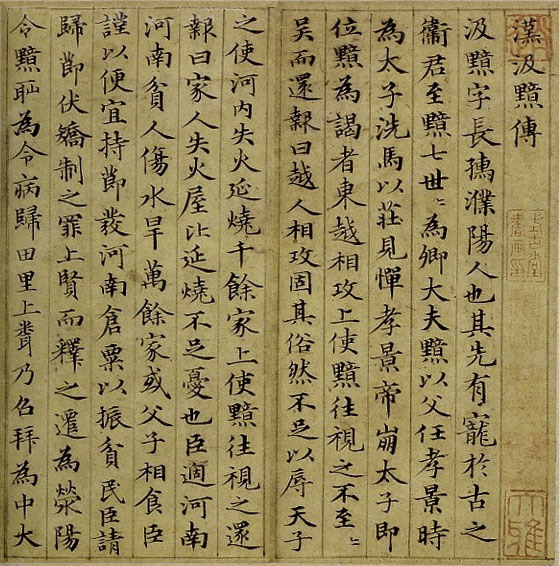 漢汲黯傳
汲黯字長孺濮陽人也其先有寵於古之
衛君至黯七世〻為卿大夫黯以父任孝景時
為太子洗馬以莊見憚孝景帝崩太子即
位黯為謁者東越相攻上使黯往視之不至〻
吴而還報曰越人相攻固其俗然不足以辱天子
之使河内失火延燒千餘家上使黯往視之還
報曰家人失火屋比延燒不足憂也臣適河南
河南貧人傷水旱萬餘家或父子相食臣
謹以便宜持節發河南倉粟以振貧民臣請
歸節伏矯制之罪上賢而釋之遷為滎陽
令黯恥為令病歸田里上聞乃召拜為中大
式古堂
書畫印
大雅